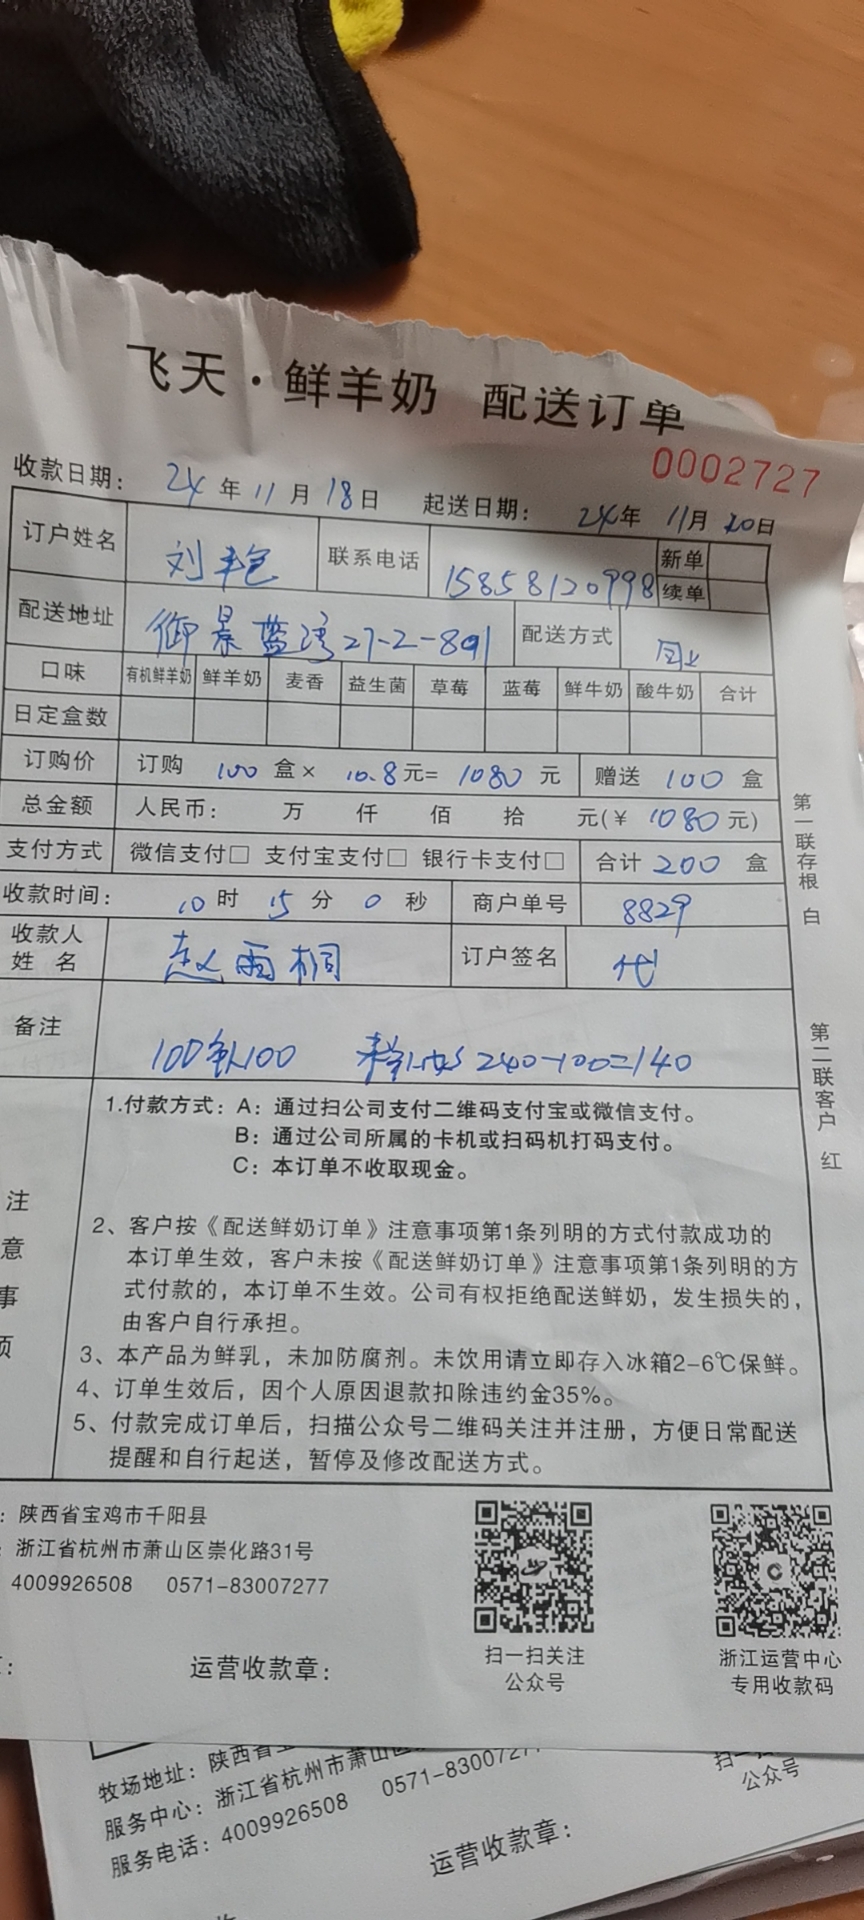 飞天·鲜羊奶 配送订单
0002727
收款日期： 24年11月18日 起送日期： 24年11月20日
订户姓名 刘丰色 联系电话 15858120998 新单
续单
配送地址 御景蓝湾27-2-801 配送方式
口味 有机鲜羊奶 鲜羊奶 麦香 益生菌 草莓 蓝莓 鲜牛奶 酸牛奶 合计
日定盒数
订购价 订购 100 盒× 10.8元= 1080 元 赠送 100 盒
总金额 人民币： 万 仟 佰 拾 元(¥ 1080元)
支付方式 微信支付□ 支付宝支付□ 银行卡支付□ 合计 200 盒
收款时间： 10时 15分 0秒 商户单号 8829
收款人
姓 名 赵雨桐 订户签名 代
备注 100 100 240-100=140
第一联存根 白
第二联客户 红
注意事项
1.付款方式：A：通过扫公司支付二维码支付宝或微信支付。
B：通过公司所属的卡机或扫码机打码支付。
C：本订单不收取现金。
2、客户按《配送鲜奶订单》注意事项第1条列明的方式付款成功的
本订单生效，客户未按《配送鲜奶订单》注意事项第1条列明的方
式付款的，本订单不生效。公司有权拒绝配送鲜奶，发生损失的，
由客户自行承担。
3、本产品为鲜乳，未加防腐剂。未饮用请立即存入冰箱2-6℃保鲜。
4、订单生效后，因个人原因退款扣除违约金35%。
5、付款完成订单后，扫描公众号二维码关注并注册，方便日常配送
提醒和自行起送，暂停及修改配送方式。
：陕西省宝鸡市千阳县
：浙江省杭州市萧山区崇化路31号
4009926508 0571-83007277
运营收款章：
扫一扫关注
公众号
浙江运营中心
专用收款码
牧场地址：陕西省
服务中心：浙江省杭州市萧山
服务电话：4009926508 0571-8300727
运营收款章：
扫一
公众号